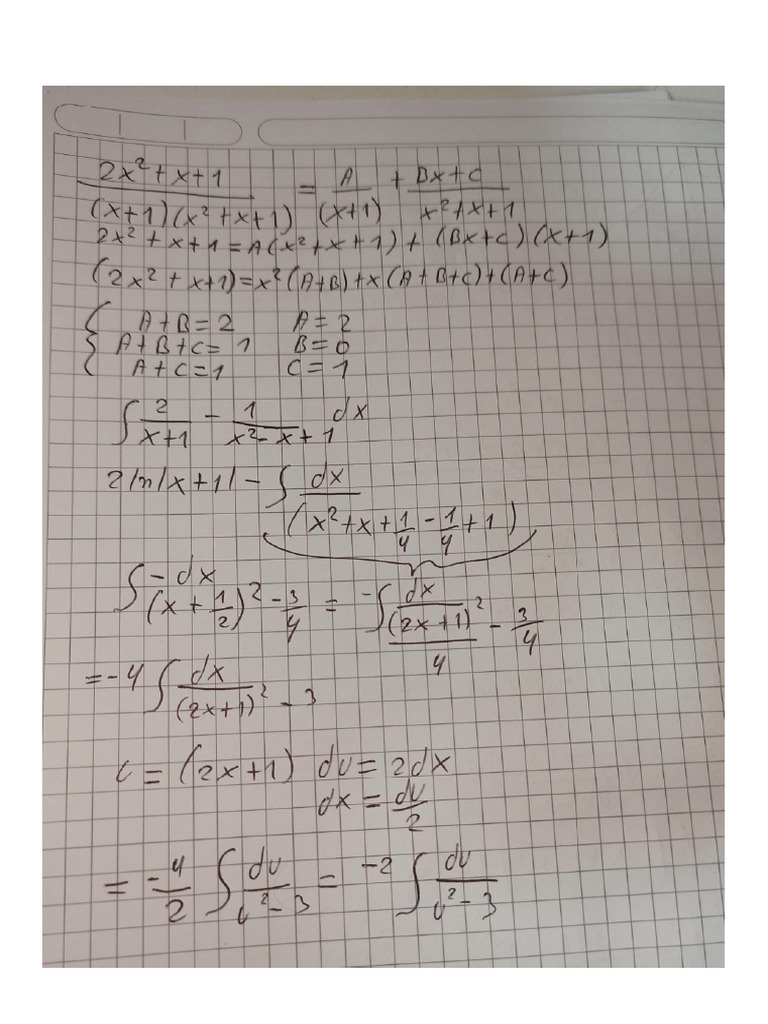 2x² + x + 1 / (x+1)(x² + x + 1) = A / (x+1) + Bx + C / x² + x + 1
2x² + x + 1 = A(x² + x + 1) + (Bx + C)(x + 1)
(2x² + x + 1) = x²(A+B) + x(A+B+C) + (A+C)
{ A + B = 2 A = 2
A + B + C = 1 B = 0
A + C = 1 C = 1
∫ 2 / x+1 - 1 / x² - x + 1 dx
2 ln|x+1| - ∫ dx / (x² + x + 1/4 - 1/4 + 1)
∫ -dx / (x + 1/2)² - 3/4 = -∫ dx / (2x+1)²/4 - 3/4
= -4 ∫ dx / (2x+1)² - 3
u = (2x+1) du = 2dx
dx = du/2
= -4/2 ∫ du / u² - 3 = -2 ∫ du / u² - 3